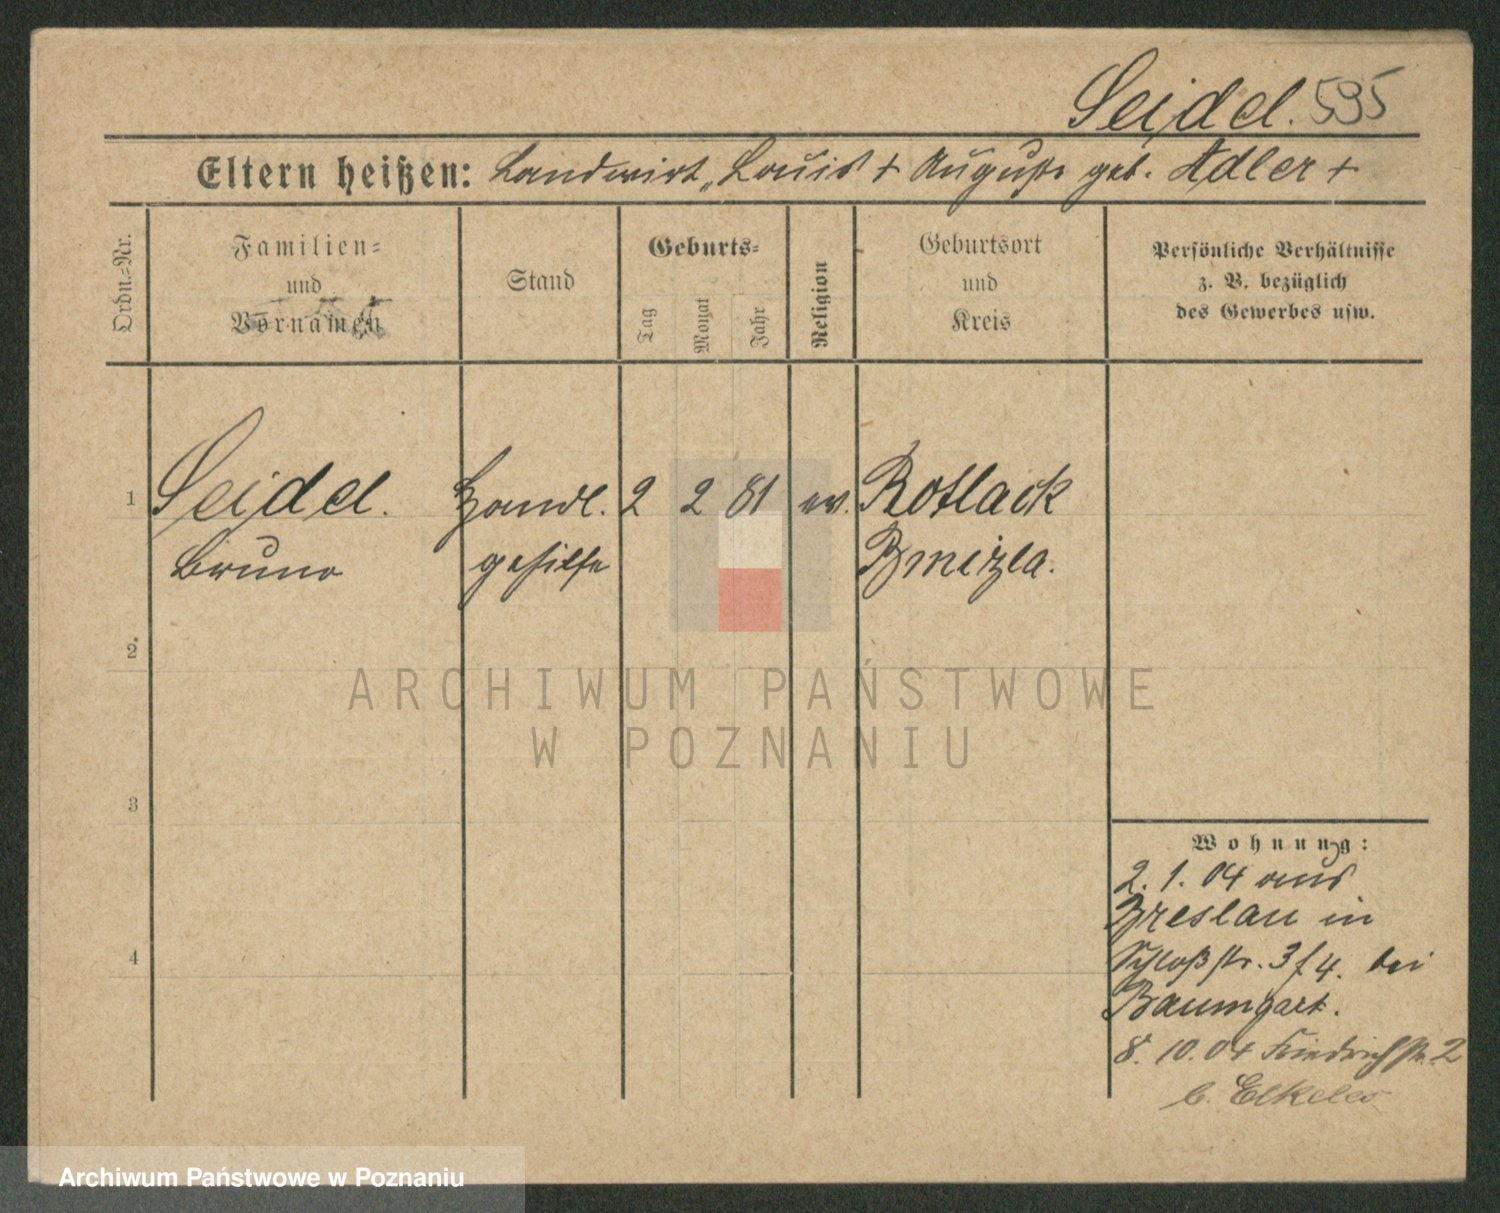 Seidel. 595
Eltern heißen: Landwirt „Louis + Auguste geb. Adler +
Ordn.=Nr.
Familien=
und
Vornamen
Stand
Geburts=
Tag
Monat
Jahr
Religion
Geburtsort
und
Kreis
Persönliche Verhältnisse
z. B. bezüglich
des Gewerbes usw.
1 Seidel. Handl. 2 2 81 ev. Rotlack
Bruno gehilfe
2
3
4
Wohnung:
2. 1. 04 aus
Breslau in
Schloßstr. 3/4. bei
Baumgart.
8. 10. 04 Friedrichstr. 2
b. Elkeles
ARCHIWUM PAŃSTWOWE
W POZNANIU
Archiwum Państwowe w Poznaniu